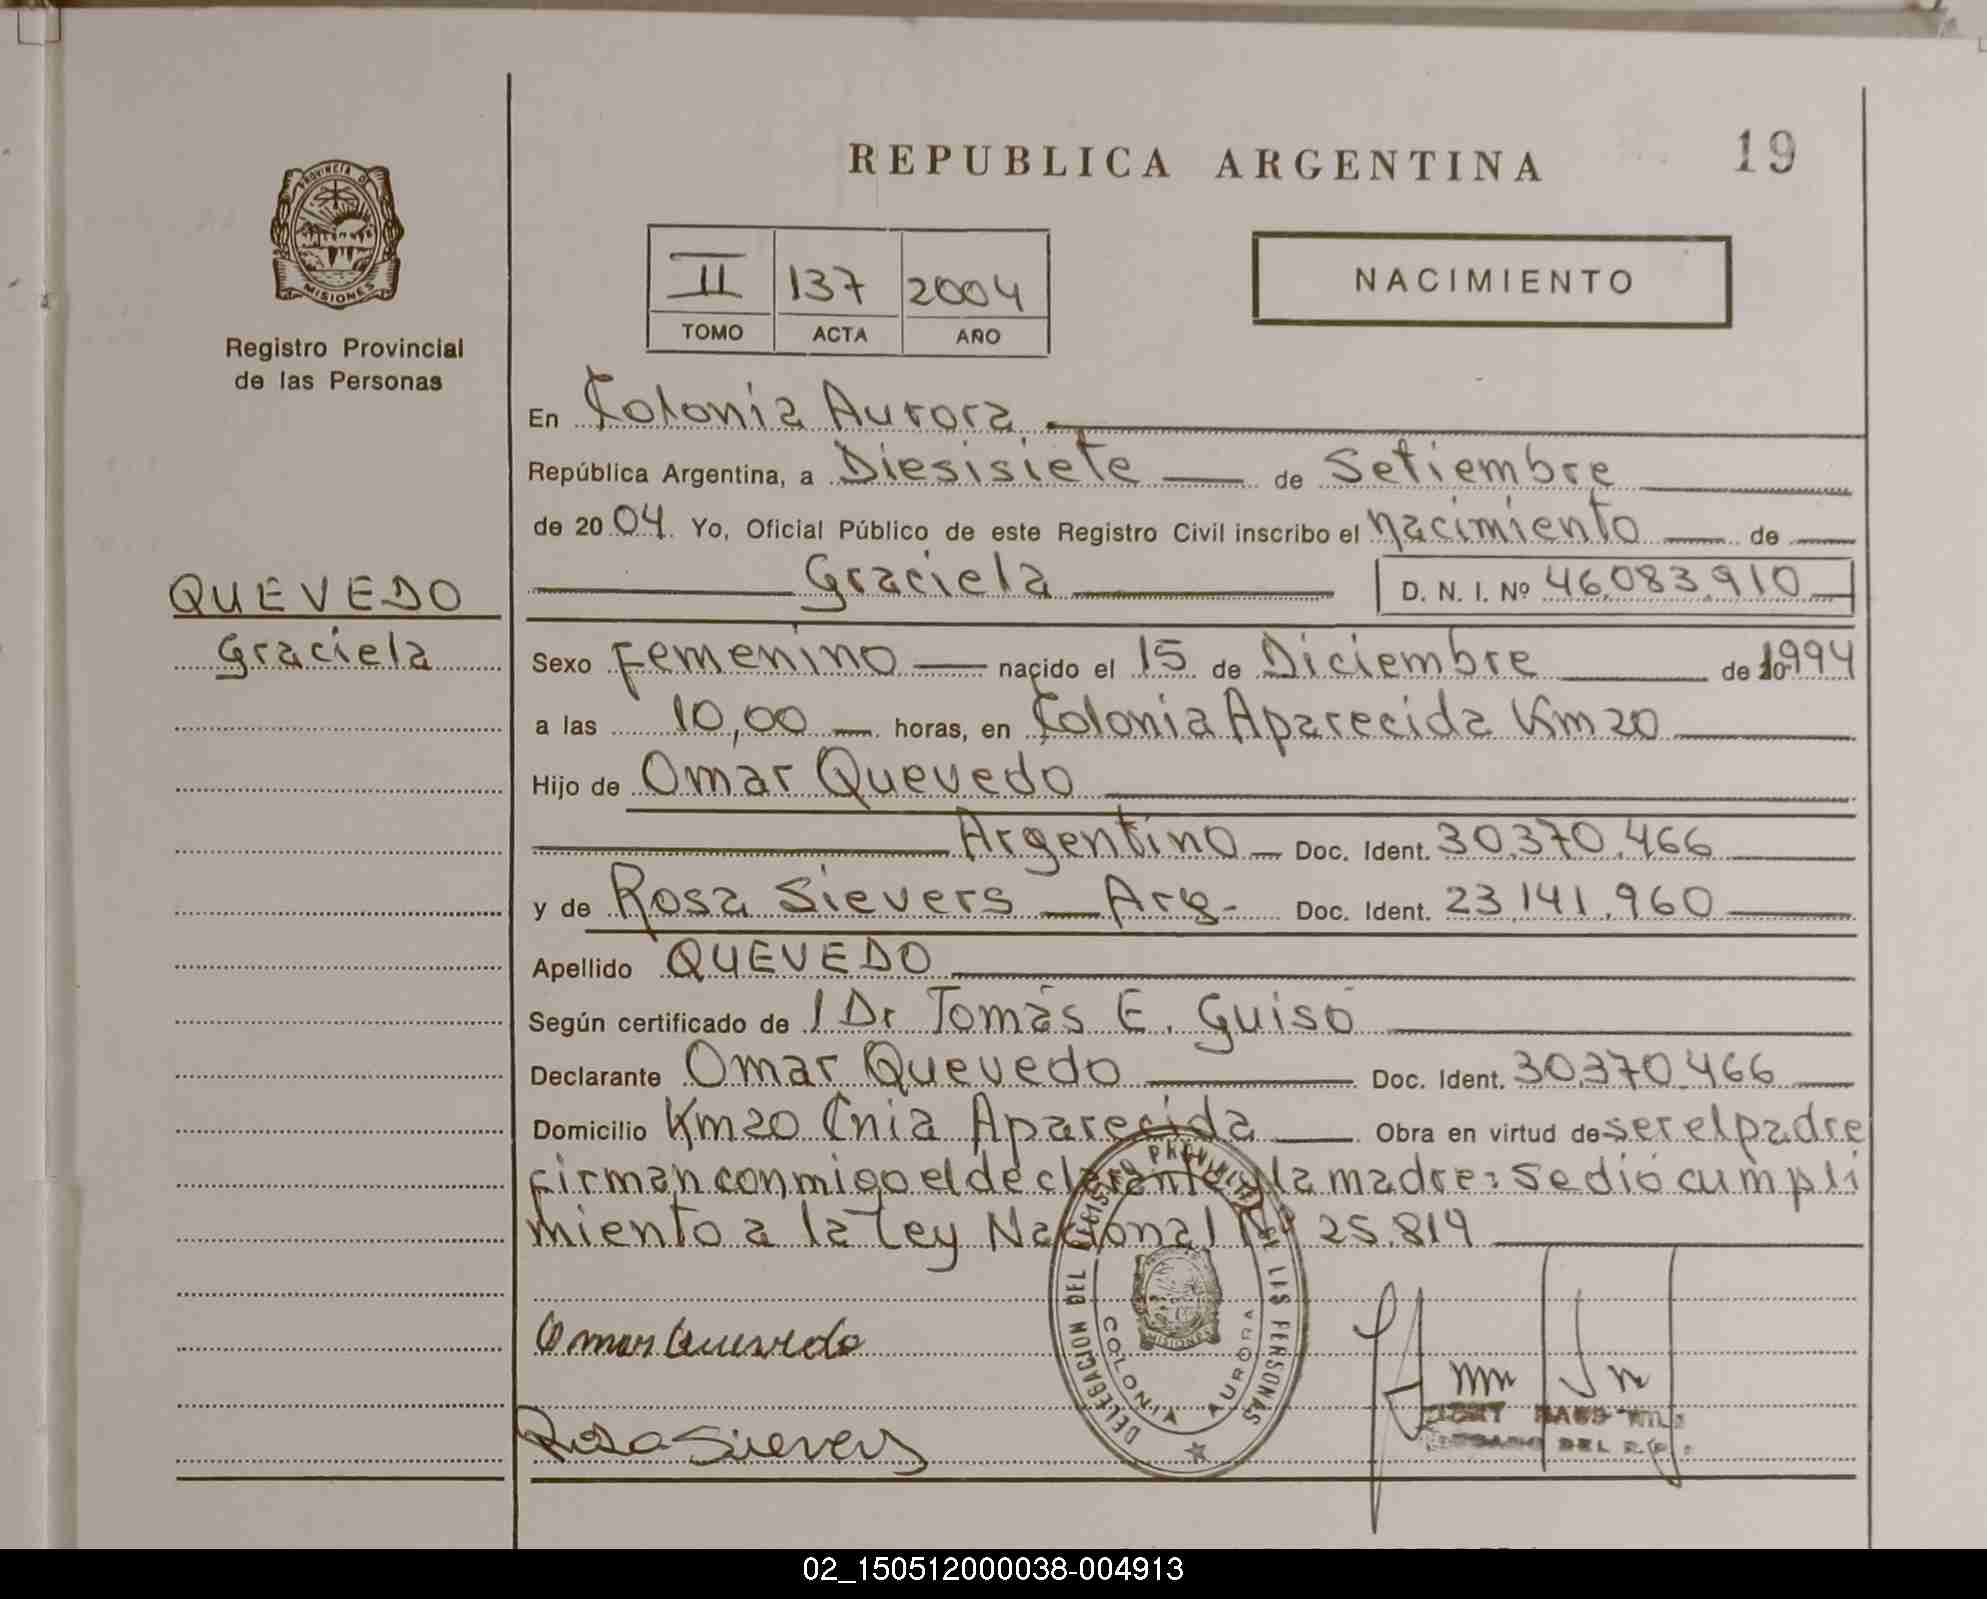 REPUBLICA ARGENTINA
19
PROVINCIA DE
MISIONES
Registro Provincial
de las Personas
II 137 2004
TOMO ACTA AÑO
NACIMIENTO
En Colonia Aurora
República Argentina, a Diesisiete de Setiembre
de 20 04. Yo, Oficial Público de este Registro Civil inscribo el nacimiento de
Graciela D. N. I. Nº 46.083.910
QUEVEDO
Graciela
Sexo Femenino nacido el 15 de Diciembre de 1994
a las 10,00 horas, en Colonia Aparecida Km 20
Hijo de Omar Quevedo
Argentino Doc. Ident. 30.370.466
y de Rosa Sievers Arg. Doc. Ident. 23.141.960
Apellido QUEVEDO
Según certificado de / Dr Tomás E. Guiso
Declarante Omar Quevedo Doc. Ident. 30.370.466
Domicilio Km 20 Cnia Aparecida Obra en virtud de ser el padre
firman conmigo el declarante y la madre: Se dió cumpli
miento a la Ley Nacional Nº 25.819
Omar Quevedo
Rosa Sievers
DELEGACION DEL REGISTRO PROVINCIAL DE LAS PERSONAS
COLONIA AURORA
MISIONES
DEL R.P.
02_150512000038-004913